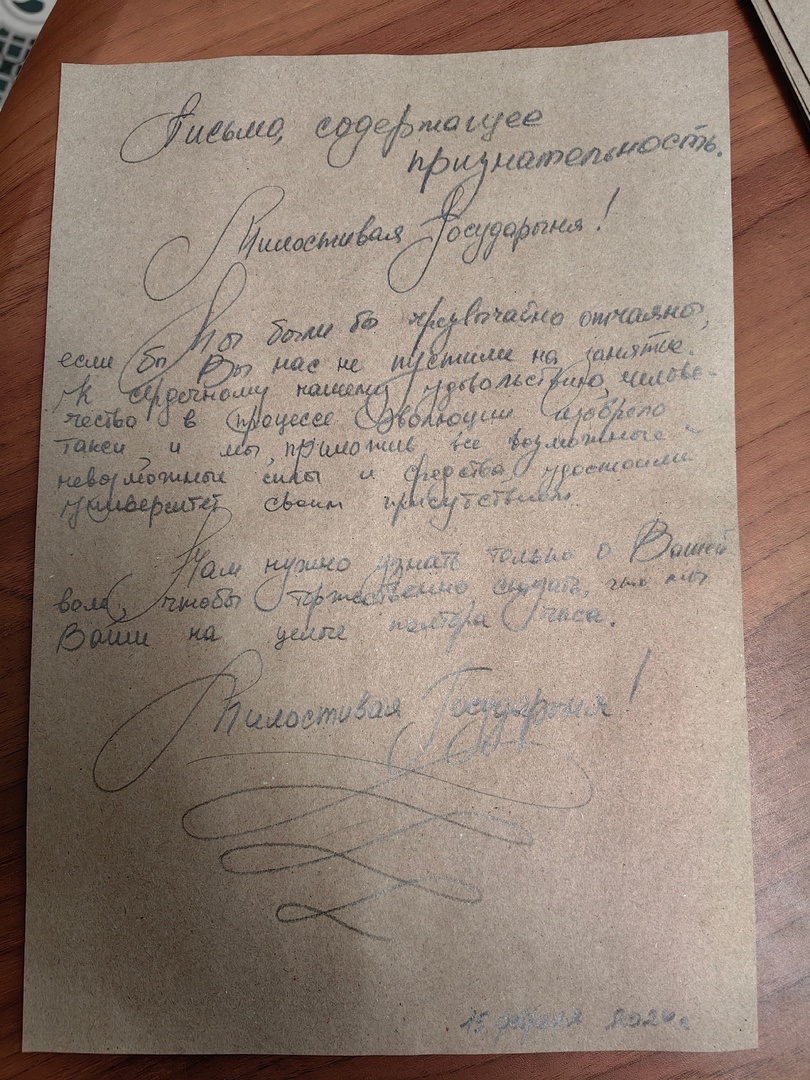 Письмо, содержащее
признательность.
Милостивая Государыня!
Мы были бы чрезвычайно отчаянны,
если бы Вы нас не пустили на занятие.
К сердечному нашему удовольствию, челове-
чество в процессе эволюции изобрело
такси, и мы, приложив все возможные и
невозможные силы и средства, удостоили
университет своим присутствием.
Нам нужно узнать только о Вашей
воле, чтобы торжественно сказать, что мы
Ваши на целые полтора часа.
Милостивая Государыня!
15 февраля 2024 г.